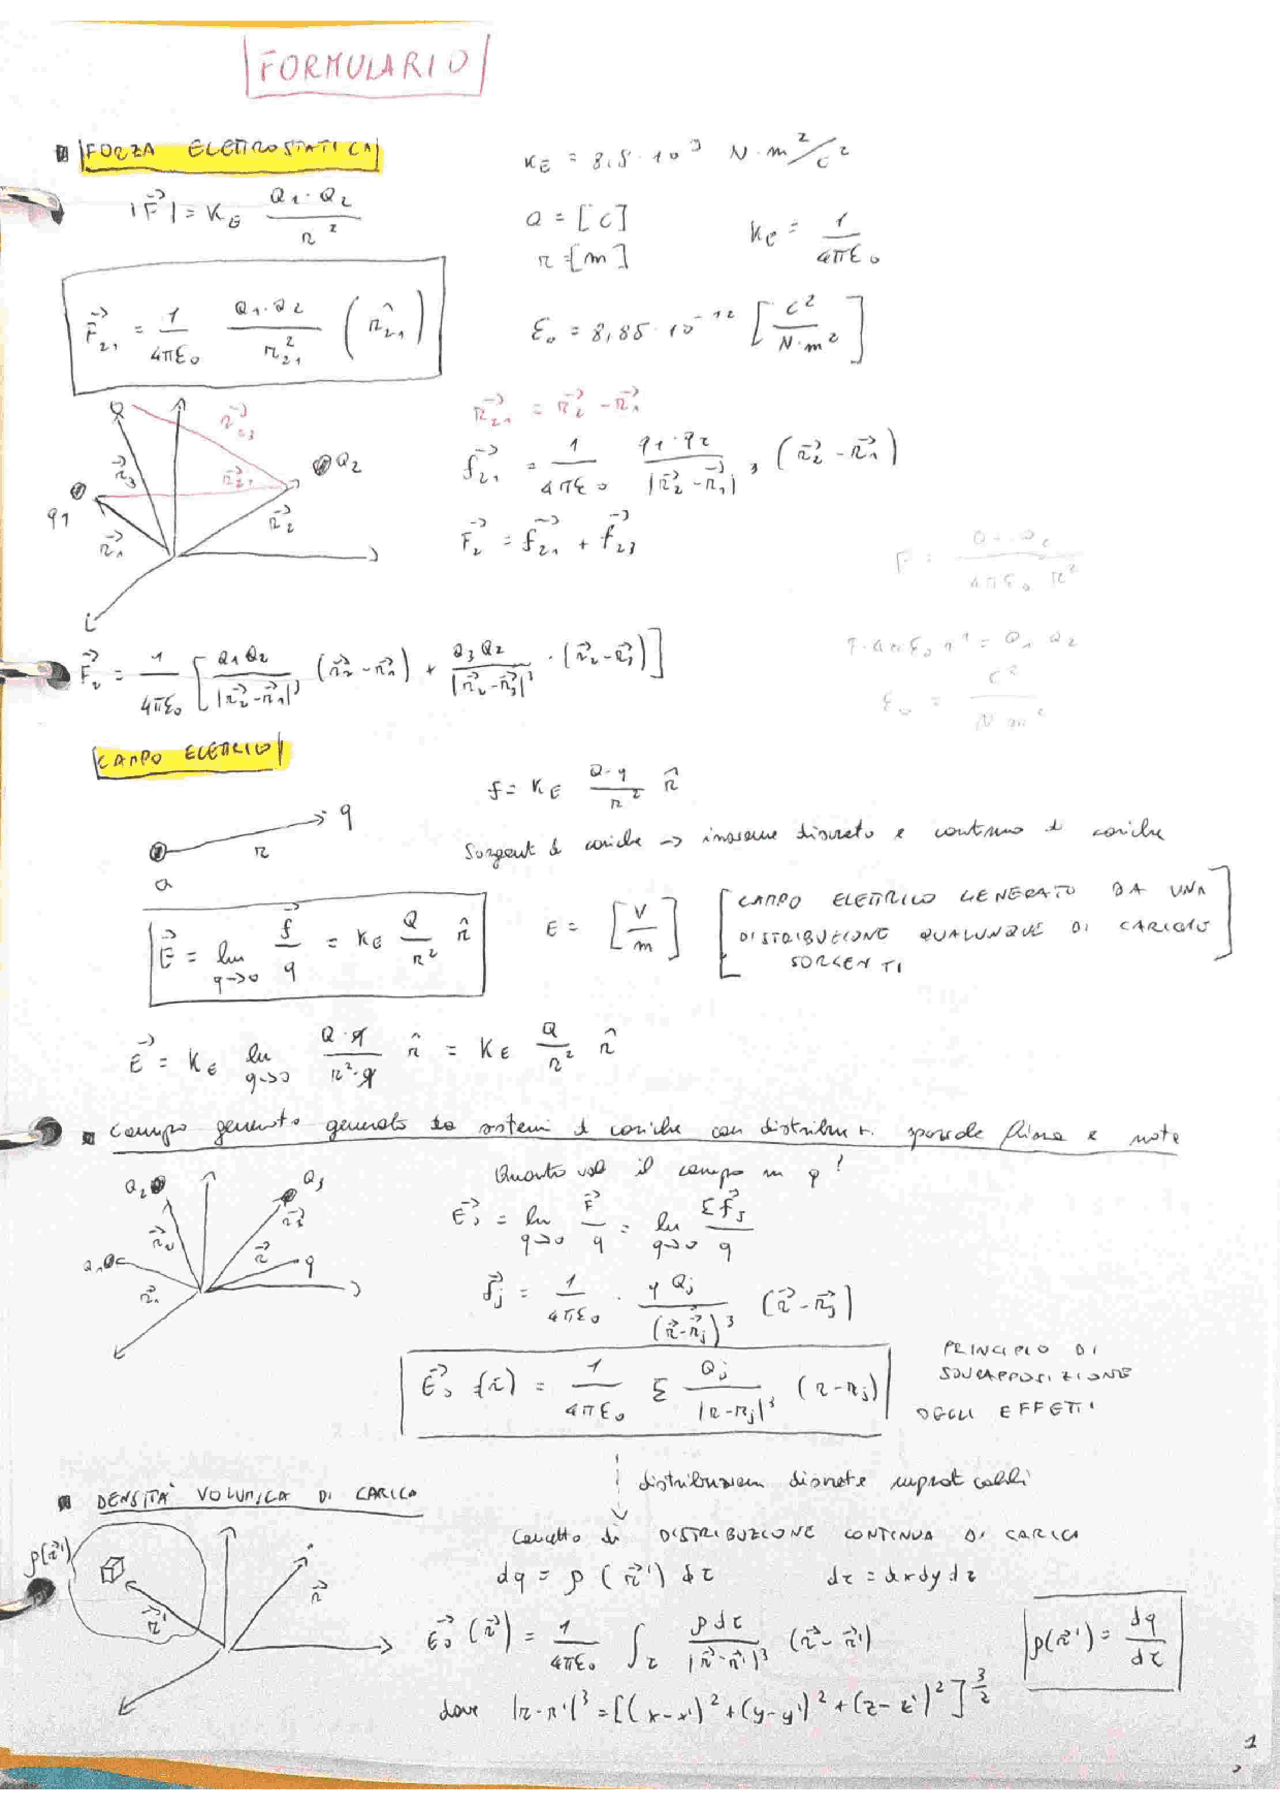 FORMULARIO
FORZA ELETTROSTATICA
K_E = 8,8 · 10^9 N·m^2/C^2
|F⃗| = K_E Q1·Q2 / r^2
Q = [C]
r = [m]
K_E = 1 / 4πε0
F⃗21 = 1/4πε0 Q1·Q2 / r21^2 (r̂21)
ε0 = 8,85·10^-12 [C^2 / N·m^2]
r⃗21 = r⃗2 - r⃗1
r⃗23
r⃗21
Q2
q1
r⃗3
r⃗2
r⃗1
f⃗21 = 1/4πε0 q1·q2 / |r⃗2 - r⃗1|^3 (r⃗2 - r⃗1)
F⃗2 = f⃗21 + f⃗23
F = Q1·Q2 / 4πε0 r^2
F⃗2 = 1/4πε0 [Q1Q2 / |r⃗2-r⃗1|^3 (r⃗2-r⃗1) + Q3Q2 / |r⃗2-r⃗3|^3 · (r⃗2-r⃗3)]
ε0 = C^2 / N m^2
CAMPO ELETTRICO
f = K_E Q·q / r^2 r̂
q
r
Q
Sorgenti di cariche -> insieme discreto e continuo di cariche
E⃗ = lim q->0 f⃗/q = K_E Q/r^2 r̂
E = [V/m]
[CAMPO ELETTRICO GENERATO DA UNA
DISTRIBUZIONE QUALUNQUE DI CARICHE
SORGENTI]
E⃗ = K_E lim q->0 Q·q / r^2·q r̂ = K_E Q/r^2 r̂
campo generato generato da sistemi di cariche con distribuz. spaziale finita e note
Quanto vale il campo in q?
Q2
Qj
q
r⃗
E⃗0 = lim q->0 F⃗/q = lim q->0 Σf⃗j/q
f⃗j = 1/4πε0 · q Qj / (r⃗-r⃗j)^3 (r⃗-r⃗j)
E⃗0 (r⃗) = 1/4πε0 Σ Qj / |r-rj|^3 (r-rj)
PRINCIPIO DI
SOVRAPPOSIZIONE
DEGLI EFFETTI
DENSITA' VOLUMICA DI CARICA
Concetto di DISTRIBUZIONE CONTINUA DI CARICA
ρ(r⃗')
r⃗'
r⃗
dq = ρ(r⃗') dτ
dτ = dxdydz
E⃗0 (r⃗) = 1/4πε0 ∫τ ρdτ / |r⃗-r⃗'|^3 (r⃗-r⃗')
ρ(r⃗') = dq/dτ
dove |r-r'|^3 = [(x-x')^2+(y-y')^2+(z-z')^2]^3/2
1